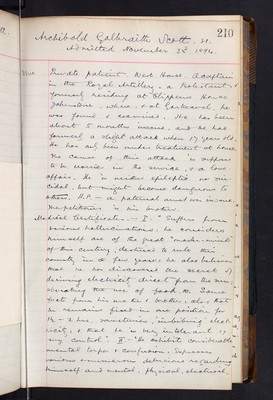 210
Archibald Galbraith Scott 31.
Admitted November 23rd 1894.
Private patient West House. A captain
in the Royal Artillery, a Protestant,
formerly residing at Clippens House
Johnstone, where, & at Gartnavel, he
was found & examined. He has been
about 5 months insane, and he has
formerly a slight attack when 17 years old.
He has only been under treatment at home.
The cause of this attack is suppose
to be worries in the service, & a love
affair. He is neither epileptic nor sui-
cidal, but might become dangerous to
others. H.P. – a paternal aunt was insane.
The petitioner is his brother.
Medical Certificates – I. "Suffers from
various hallucinations; he considers
himself one of the great "master-minds"
of this century, destined to rule this
country in a few years; he also believes
that he has discovered the secret of
deriving electricity direct from the sun,
obviating the use of food. Some
facts from his mother & brother, also that
he remains fixed in one position for
1½ – 2 hrs. sometimes, "imbibing elect-
ricity", & that he is very intolerant of
any control". II. "He exhibits considerable
mental torpor & confusion. Expresses
various & numerous delusions regarding
himself and mental, physical, electrical